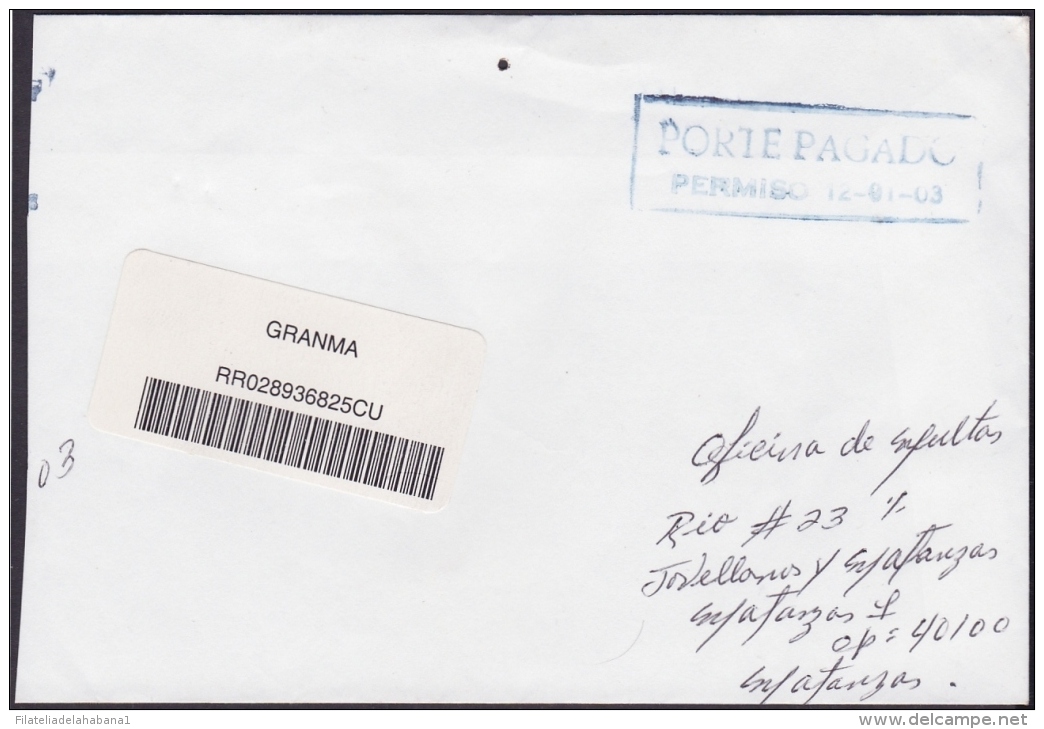 PORTE PAGADO
PERMISO 12-01-03
GRANMA
RR028936825CU
03
Oficina de Multas
Rio # 23 %
Jovellanos y Matanzas
Matanzas 1
cp = 40100
Matanzas.
Filateliadelahabana1
www.delcampe.net